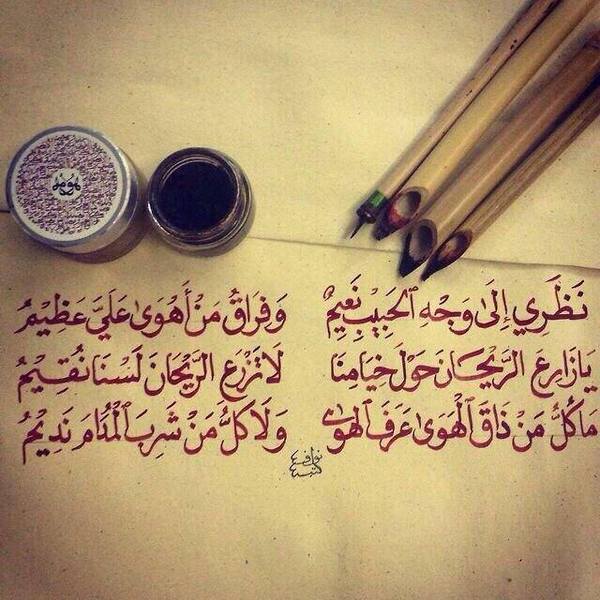 نَظَرِي إِلَىٰ وَجْهِ ٱلْحَبِيْبِ نَعِيمٌ وَفِرَاقُ مَنْ أَهْوَىٰ عَلَيَّ عَظِيْمٌ
يَا زَارِعَ الرَّيْحَانَ حَوْلَ خِيَامِنَا لَا تَزْرَعِ الرَّيْحَانَ لَسْنَا نُقِيْمُ
مَا كُلُّ مَنْ ذَاقَ ٱلْهَوَىٰ عَرَفَ ٱلْهَوَىٰ وَلَا كُلُّ مَنْ شَرِبَ ٱلْمُدَامَ نَدِيْمُ